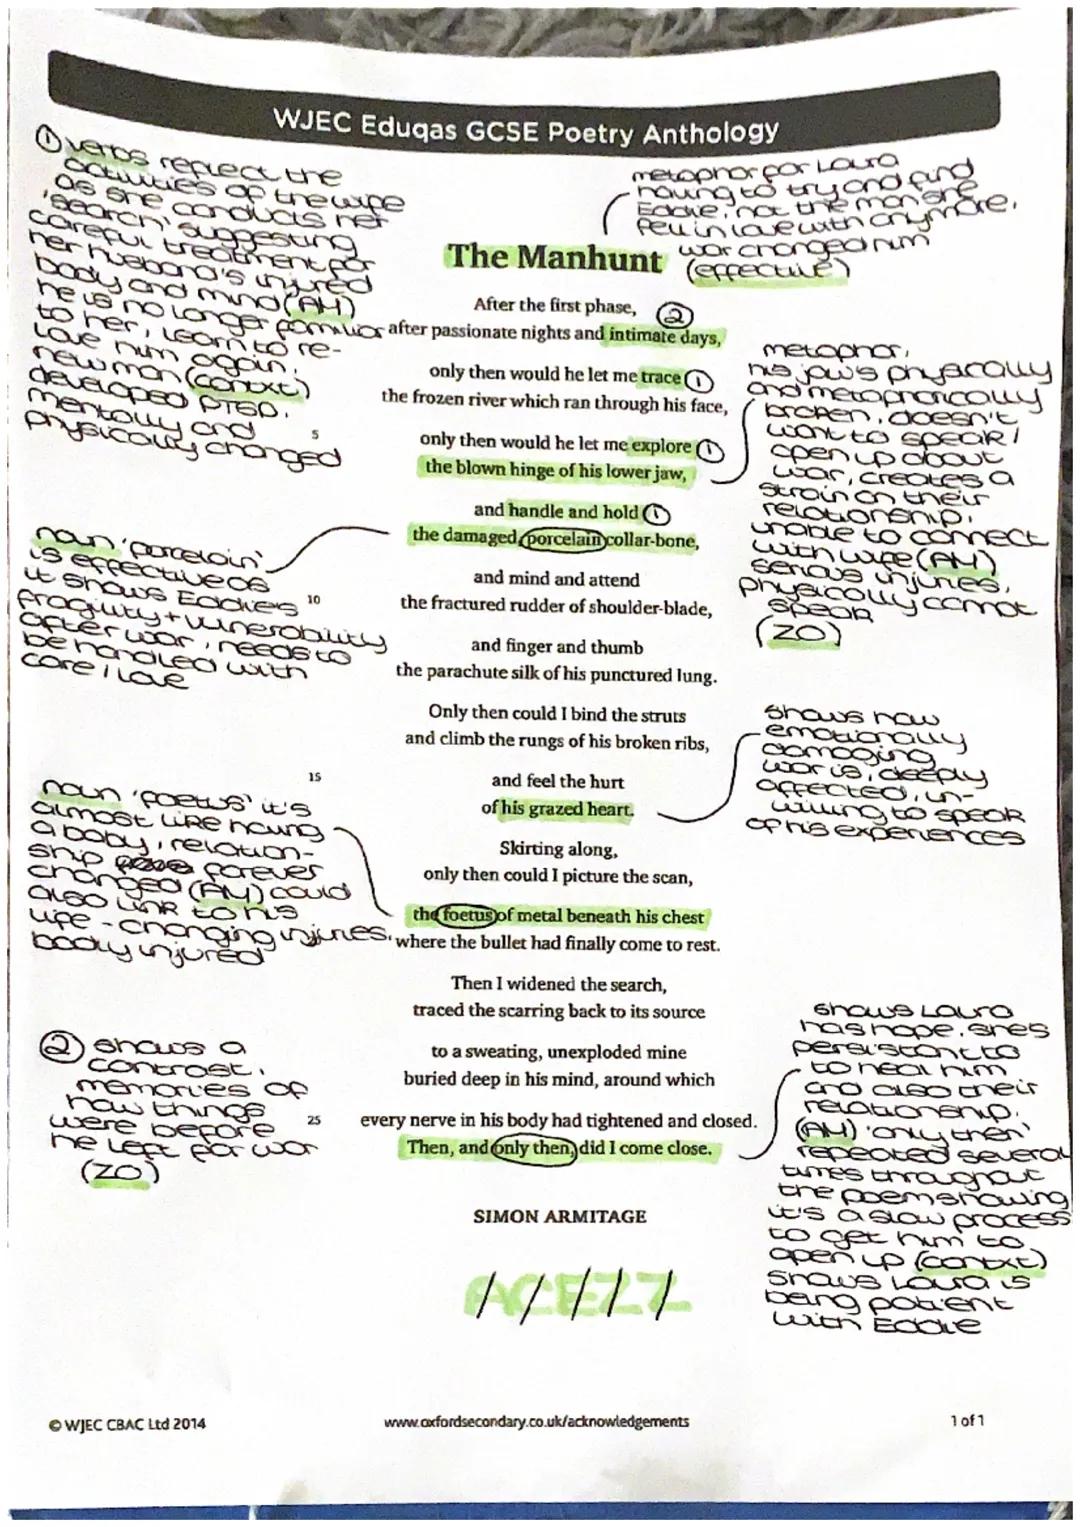 WJEC Eduqas GCSE Poetry Anthology
① verbs reflect the
activities of the wife
as she conducts her
'search', suggesting
careful treatment for
her husband's injured
body and mind (AM)
he is no longer familiar
to her, learn to re-
love him again,
new man (contxt)
developed PTSD.
mentally and
physically changed
metaphor for Laura
having to try and find
Eddie, not the man she
fell in love with anymore,
war changed him
(effective)
The Manhunt
After the first phase, ②
after passionate nights and intimate days,
only then would he let me trace ①
the frozen river which ran through his face,
5
only then would he let me explore ①
the blown hinge of his lower jaw,
and handle and hold ①
the damaged, porcelain collar-bone,
and mind and attend
10
the fractured rudder of shoulder-blade,
and finger and thumb
the parachute silk of his punctured lung.
Only then could I bind the struts
and climb the rungs of his broken ribs,
15
and feel the hurt
of his grazed heart.
Skirting along,
only then could I picture the scan,
the foetus of metal beneath his chest
where the bullet had finally come to rest.
Then I widened the search,
traced the scarring back to its source
to a sweating, unexploded mine
buried deep in his mind, around which
25
every nerve in his body had tightened and closed.
Then, and only then, did I come close.
SIMON ARMITAGE
ACEZZ
metaphor,
his jaw's physically
and metaphorically
broken, doesn't
want to speak /
open up about
war, creates a
strain on their
relationship.
unable to connect
with wife (AM)
serious injuries,
physically cannot
speak
(ZO)
noun 'porcelain'
is effective as
it shows Eddie's
fragility + vunerability
after war, needs to
be handled with
care / love
shows how
emotionally
damaging
war is, deeply
affected, un-
willing to speak
of his experiences
noun 'foetus' it's
almost like having
a baby, relation-
ship forever
changed (AM) could
also link to his
life-changing injuries.
body injured
② shows a
contrast,
memories of
how things
were before
he left for war
(ZO)
shows Laura
has hope. she's
persistant to
to heal him
and also their
relationship.
(AM) 'only then'
repeated several
times throughout
the poem showing
it's a slow process
to get him to
open up (contxt)
shows Laura is
being patient
with Eddie
© WJEC CBAC Ltd 2014
www.oxfordsecondary.co.uk/acknowledgements
1 of 1